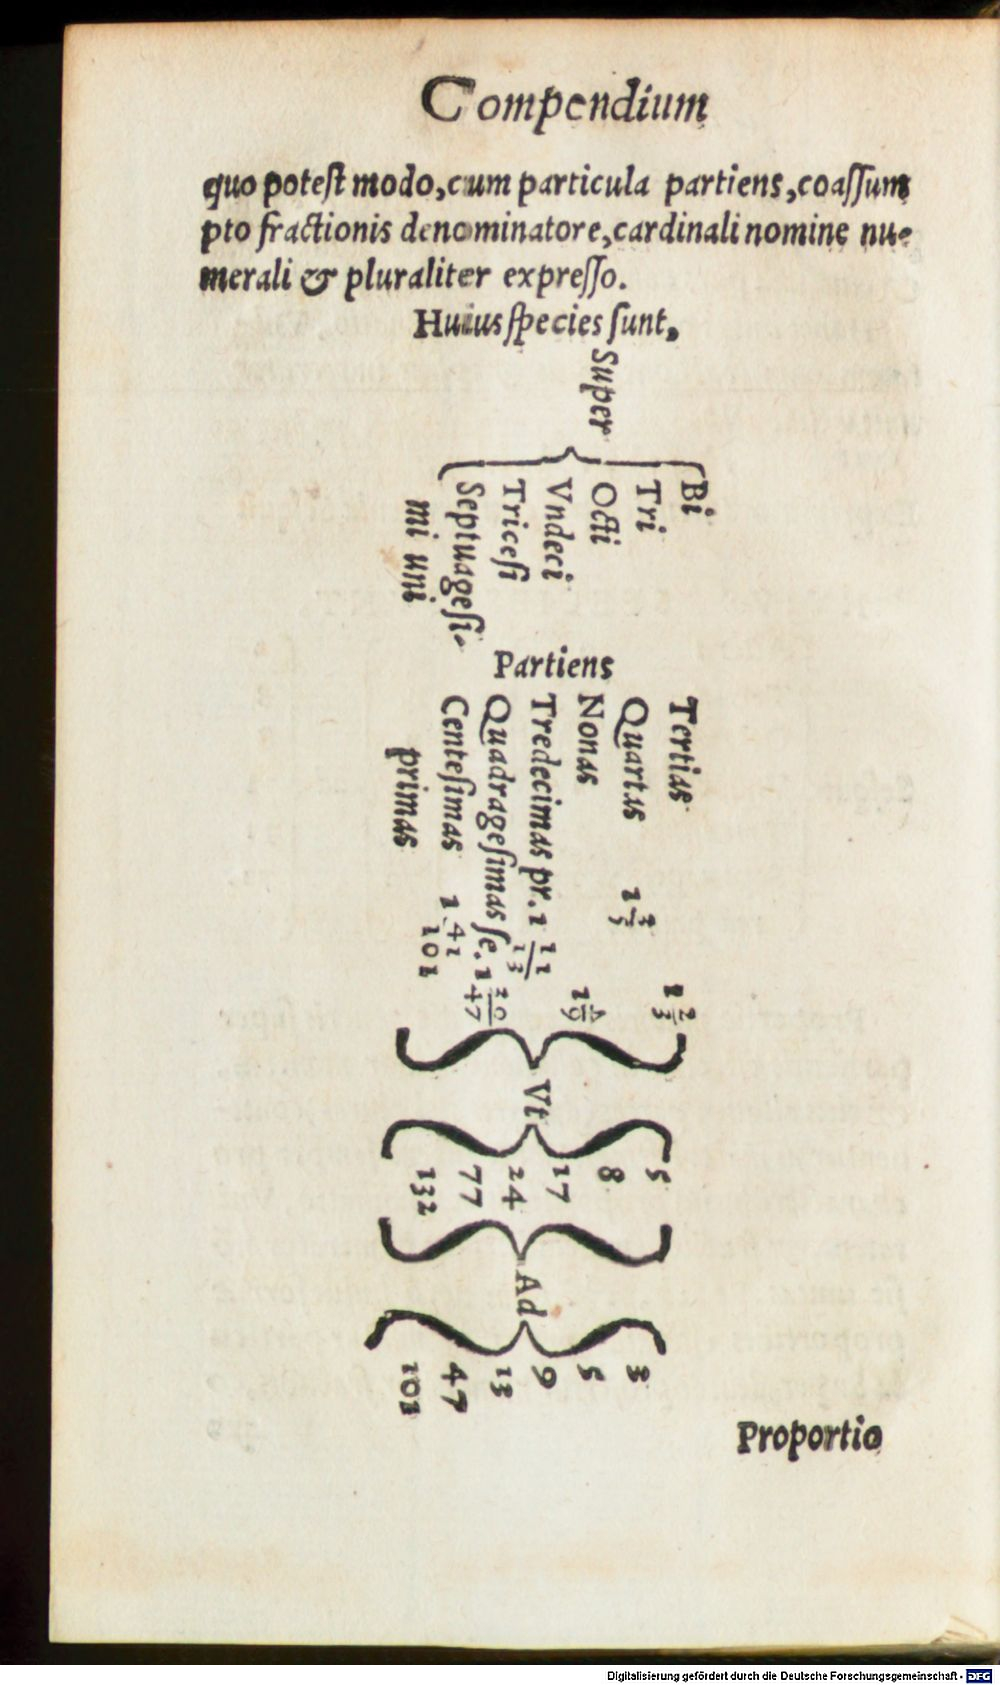 Compendium
quo potest modo, cum particula partiens, coassum
pto fractionis denominatore, cardinali nomine nu-
merali & pluraliter expresso.
Huius species sunt,
Super
Bi
Tri
Octi
Vndeci
Tricesi
Septuagesi-
mi uni
Partiens
Tertias 1 2/3
Quartas 1 3/5
Nonas 1 8/9
Tredecimas pr. 1 11/13
Quadragesimas se. 1 30/47
Centesimas 1 41/101
primas
Vt
5
8
17
24
77
132
Ad
3
5
9
13
47
101
Proportio
Digitalisierung gefördert durch die Deutsche Forschungsgemeinschaft - DFG